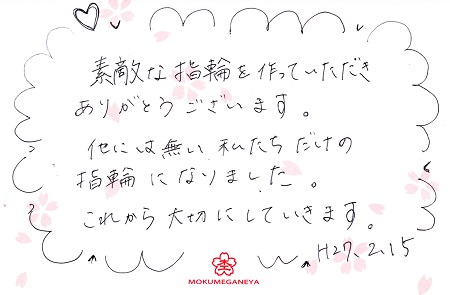 素敵な指輪を作っていただき
ありがとうございます。
他には無い私たちだけの
指輪になりました。
これから大切にしていきます。
H27.2.15
MOKUMEGANEYA